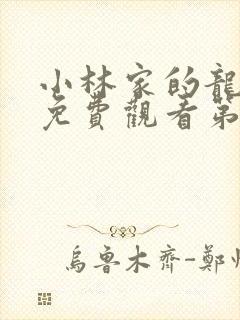 小林家的龍
免費觀看第
烏魯木齊-鄭